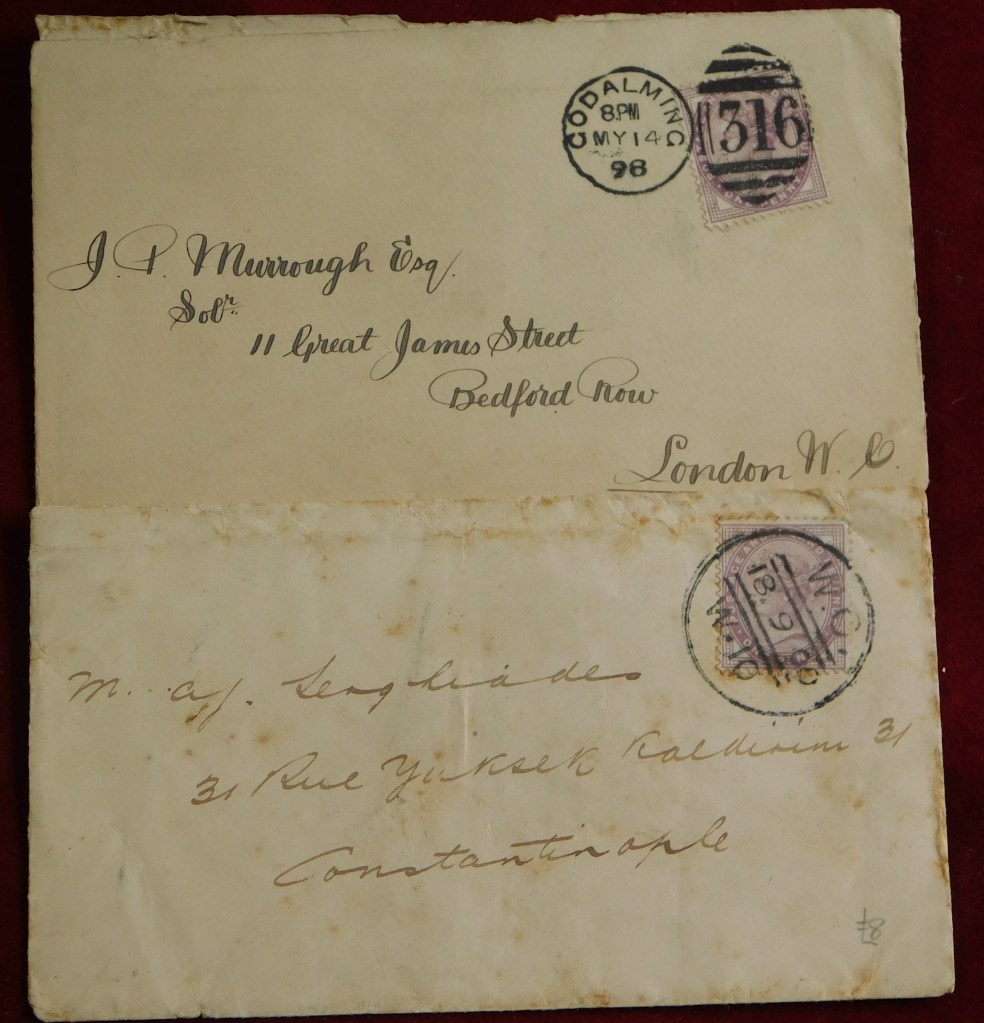 GODALMING
8PM
MY 14
98
316
J. P. Murrough Esq.
Solr.
11 Great James Street
Bedford Row
London W. C.
W.C.
18. 9
M. A. J. Serghiades
31 Rue Yuksek Kaldirim 31
Constantinople
£8